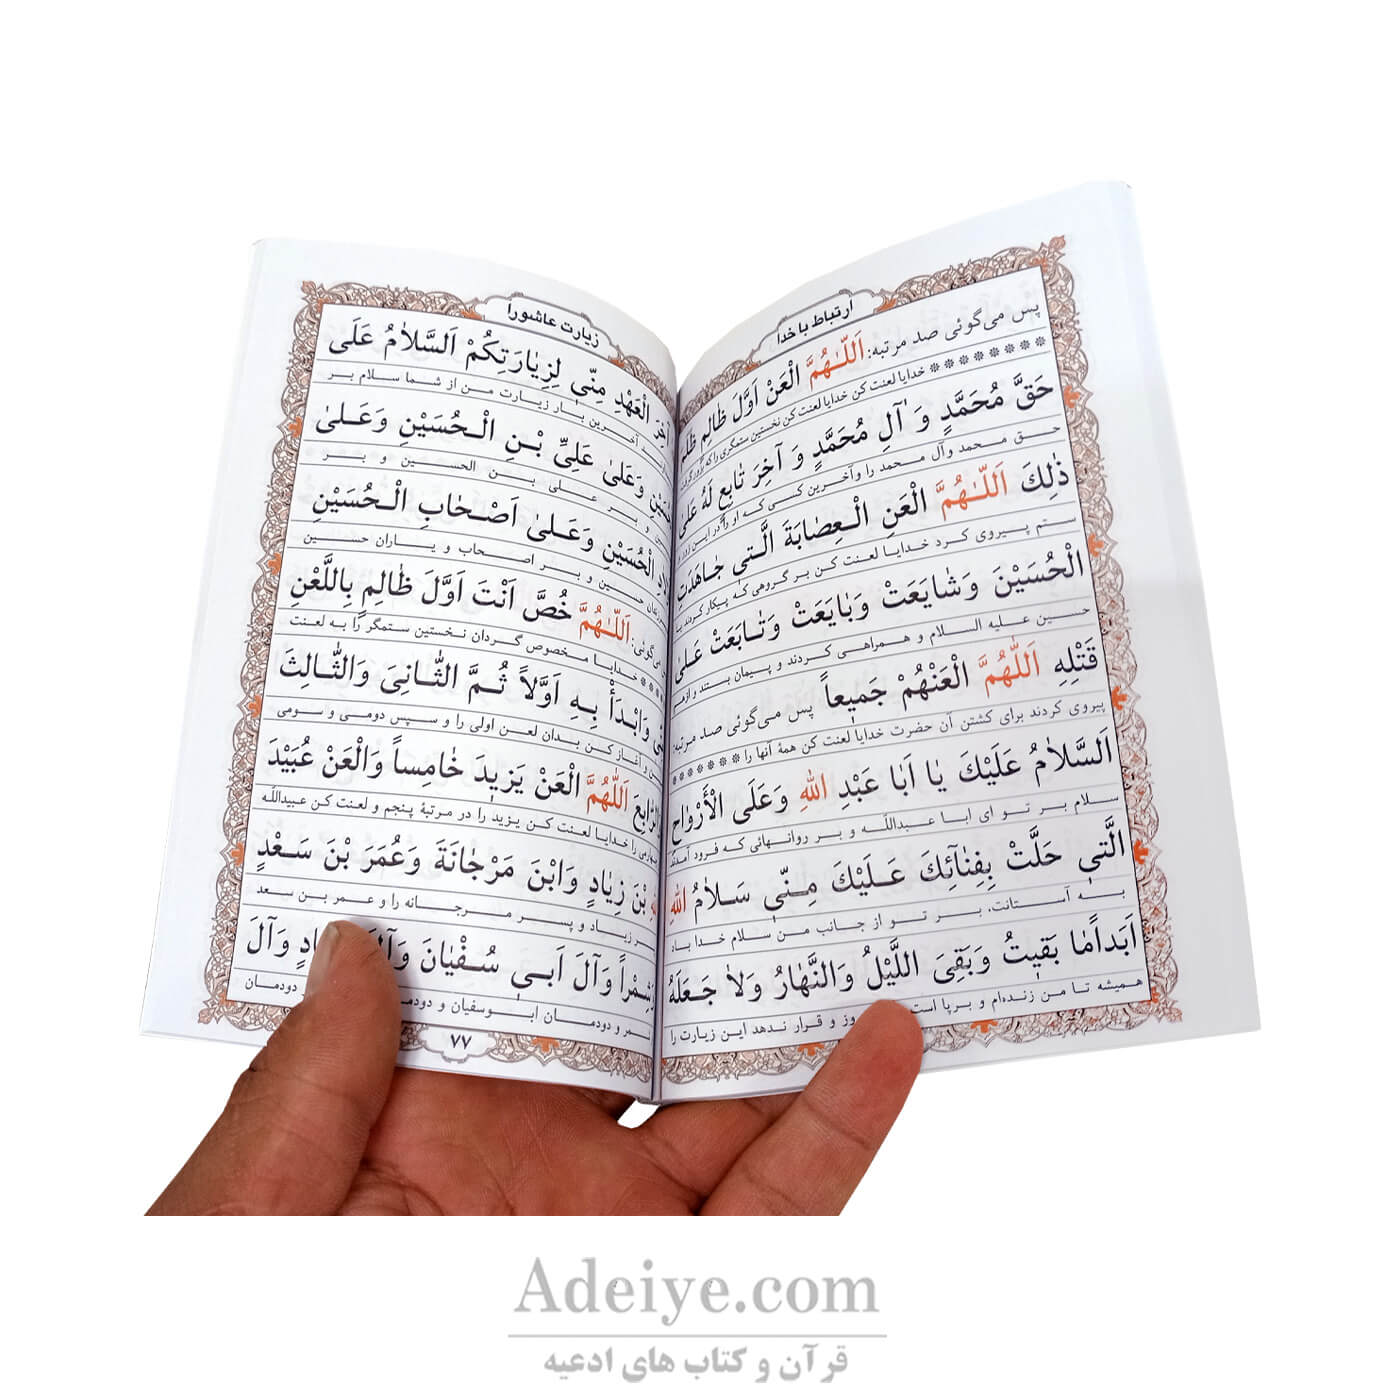 ارتباط با خدا
پس می‌گوئی صد مرتبه: اَللّٰهُمَّ الْعَنْ اَوَّلَ ظٰالِمٍ ظَلَمَ
******** خدایا لعنت کن خدایا لعنت کن نخستین ستمگری را که بزور گرفت
حَقَّ مُحَمَّدٍ وَ اٰلِ مُحَمَّدٍ وَ آخِرَ تٰابِعٍ لَهُ عَلىٰ
حق محمد وآل محمد را وآخرین کسی که او را در این زور و
ذٰلِكَ اَللّٰهُمَّ الْعَنِ الْعِصٰابَةَ الَّتى جٰاهَدَتِ
ستم پیروی کرد خدایا لعنت کن بر گروهی که پیکار کردند با
الْحُسَيْنَ وَشٰايَعَتْ وَبٰايَعَتْ وَتٰابَعَتْ عَلىٰ
حسین علیه السلام و همراهی کردند و پیمان بستند و ازهم
قَتْلِهِ اَللّٰهُمَّ الْعَنْهُمْ جَميعاً پس می‌گوئی صد مرتبه:
پیروی کردند برای کشتن آن حضرت خدایا لعنت کن همهٔ آنها را *******
اَلسَّلاٰمُ عَلَيْكَ يٰا اَبٰا عَبْدِ اللهِ وَعَلَى الْأَرْوٰاحِ
سلام بر تو ای ابا عبدالله و بر روانهائی که فرود آمدند
الَّتى حَلَّتْ بِفِنٰائِكَ عَلَيْكَ مِنّى سَلاٰمُ اللهِ
به آستانت، بر تو از جانب من سلام خدا باد
اَبَداًمٰا بَقيتُ وَبَقِىَ اللَّيْلُ وَالنَّهٰارُ وَلاٰ جَعَلَهُ
همیشه تا من زنده‌ام و برپا است وز و قرار ندهد این زیارت را
زیارت عاشورا
آخِرَ الْعَهْدِ مِنّى لِزِيٰارَتِكُمْ اَلسَّلاٰمُ عَلَى
آخرین بار زیارت من از شما سلام بر
وَعَلىٰ عَلِىِّ بْنِ الْحُسَيْنِ وَعَلىٰ
و بر علی بن الحسین و بر
الْحُسَيْنِ وَعَلىٰ اَصْحٰابِ الْحُسَيْنِ
حسین و بر اصحاب و یاران حسین
می‌گوئی: اَللّٰهُمَّ خُصَّ اَنْتَ اَوَّلَ ظٰالِمٍ بِاللَّعْنِ
**** خدایا مخصوص گردان نخستین ستمگر را به لعنت
وَابْدَأْ بِهِ اَوَّلاً ثُمَّ الثّٰانِىَ وَالثّٰالِثَ
و آغاز کن بدان لعن اولی را و سپس دومی و سومی
اَللّٰهُمَّ الْعَنْ يَزيدَ خٰامِساً وَالْعَنْ عُبَيْدَ
چهارمی را خدایا لعنت کن یزید را در مرتبهٔ پنجم و لعنت کن عبیدالله
اللهِ بْنَ زِيٰادٍ وَابْنَ مَرْجٰانَةَ وَعُمَرَ بْنَ سَعْدٍ
بن زیاد و پسر مرجانه را و عمر بن سعد
وَشِمْراً وَآلَ اَبى سُفْيٰانَ وَآلَ وَآلَ
شمر و دودمان ابوسفیان و دودمان دودمان
۷۷
Adeiye.com
قرآن و کتاب های ادعیه